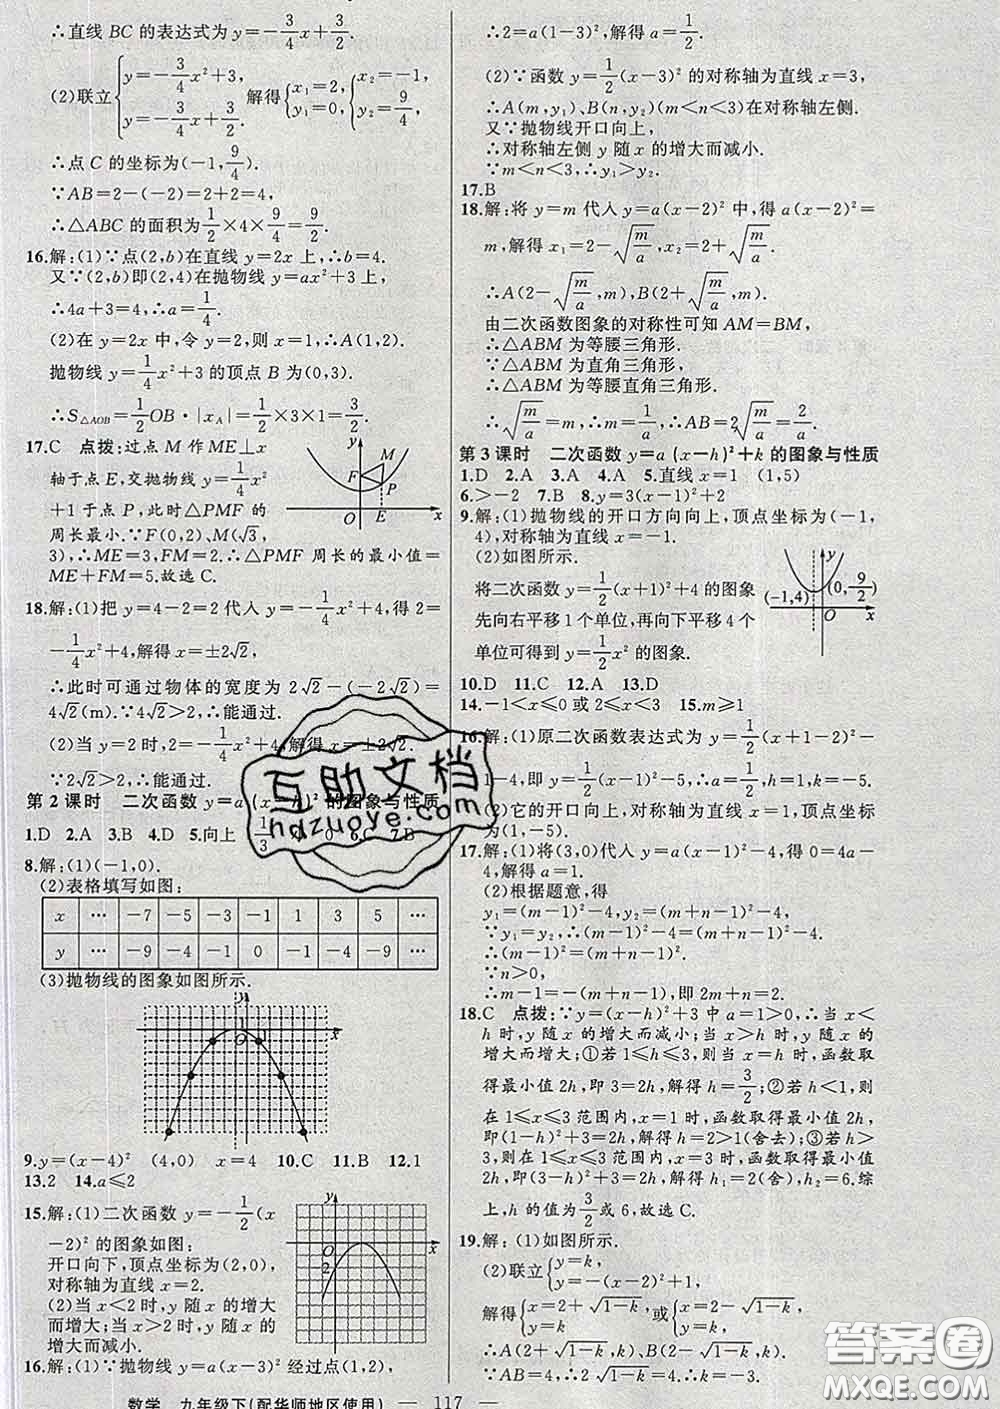 ∴直线 BC 的表达式为 y=-3/4x+3/2.
(2)联立{y=-3/4x²+3, y=-3/4x+3/2. 解得{x₁=2, y₁=0, {x₂=-1, y₂=9/4.
∴点 C 的坐标为(-1,9/4).
∵AB=2-(-2)=2+2=4,
∴△ABC 的面积为1/2×4×9/4=9/2.
16.解:(1)∵点(2,b)在直线 y=2x 上,∴b=4.
又∵(2,b)即(2,4)在抛物线 y=ax²+3 上,
∴4a+3=4,∴a=1/4.
(2)在 y=2x 中,令 x=1,则 y=2,∴A(1,2).
抛物线 y=1/4x²+3 的顶点 B 为(0,3).
∴S△AOB=1/2OB·|xA|=1/2×3×1=3/2.
17.C 点拨:过点 M 作 ME⊥x
轴于点 E,交抛物线 y=1/4x²
+1 于点 P,此时△PMF 的
周长最小.∵F(0,2)、M(√3,
3),∴ME=3,FM=2.∴△PMF 周长的最小值=
ME+FM=5.故选 C.
y M F P O E x
18.解:(1)把 y=4-2=2 代入 y=-1/4x²+4,得 2=
-1/4x²+4,解得 x=±2√2,
∴此时可通过物体的宽度为 2√2-(-2√2)=
4√2(m).∵4√2>2,∴能通过.
(2)当 x=2 时,2=-1/4x²+4,解得 x=±2√2.
∵2√2>2,∴能通过.
第 2 课时 二次函数 y=a(x-h)² 的图象与性质
1.D 2.A 3.B 4.D 5.向上 1/3 0 6.C 7.B
8.解:(1)(-1,0).
(2)表格填写如图:
x … -7 -5 -3 -1 1 3 5 …
y … -9 -4 -1 0 -1 -4 -9 …
(3)抛物线的图象如图所示.
y O x
9.y=(x-4)² (4,0) x=4 10.C 11.B 12.1
13.2 14.a≤2
15.解:(1)二次函数 y=-1/2(x
-2)² 的图象如图:
开口向下,顶点坐标为(2,0),
对称轴为直线 x=2.
(2)当 x<2 时,y 随 x 的增大
而增大;当 x>2 时,y 随 x 的增
大而减小.
y O x 2
16.解:(1)∵抛物线 y=a(x-3)² 经过点(1,2),
∴2=a(1-3)²,解得 a=1/2.
(2)∵函数 y=1/2(x-3)² 的对称轴为直线 x=3,
∴A(m,y₁)、B(n,y₂)(m<n<3)在对称轴左侧.
又∵抛物线开口向上,
∴对称轴左侧 y 随 x 的增大而减小.
∵m<n<3,∴y₁>y₂.
17.B
18.解:将 y=m 代入 y=a(x-2)² 中,得 a(x-2)²=
m,解得 x₁=2-√(m/a),x₂=2+√(m/a).
∴A(2-√(m/a),m),B(2+√(m/a),m).
由二次函数图象的对称性可知 AM=BM,
∴△ABM 为等腰三角形.
∵△ABM 为等腰直角三角形.
∴√(m/a)=m,∴m=1/a,∴AB=2√(m/a)=2/a.
第 3 课时 二次函数 y=a(x-h)²+k 的图象与性质
1.D 2.A 3.A 4.A 5.直线 x=1 (1,5)
6.>-2 7.B 8.y=3(x-1)²+2
9.解:(1)抛物线的开口方向向上,顶点坐标为(-1,
4),对称轴为直线 x=-1.
(2)如图所示.
将二次函数 y=1/2(x+1)²+4 的图象
先向右平移 1 个单位,再向下平移 4 个
单位可得到 y=1/2x² 的图象.
y (-1,4) (0,9/2) O x
10.D 11.C 12.A 13.D
14.-1<x≤0 或 2≤x<3 15.m≥1
16.解:(1)原二次函数表达式为 y=1/2(x+1-2)²-
1-4,即 y=1/2(x-1)²-5.∴a=1/2,h=1,k=-5.
(2)它的开口向上,对称轴为直线 x=1,顶点坐标
为(1,-5).
17.解:(1)将(3,0)代入 y=a(x-1)²-4,得 0=4a-
4,解得 a=1.
(2)根据题意,得
y₁=(m-1)²-4,y₂=(m+n-1)²-4,
∵y₁=y₂,∴(m-1)²-4=(m+n-1)²-4.
∴(m-1)²=(m+n-1)².
∵n>0,
∴m-1=-(m+n-1),即 2m+n=2.
18.C 点拨:∵y=(x-h)²+3 中 a=1>0,∴当 x<
h 时,y 随 x 的增大而减小;当 x>h 时,y 随 x 的
增大而增大;①若 1≤h≤3,则当 x=h 时,函数取
得最小值 2h,即 3=2h,解得 h=3/2;②若 h<1,则
在 1≤x≤3 范围内,x=1 时,函数取得最小值 2h,
即(1-h)²+3=2h,解得 h=2>1(舍去);③若 h>
3,则在 1≤x≤3 范围内,x=3 时,函数取得最小值
2h,即(3-h)²+3=2h,解得 h₁=2(舍),h₂=6.综
上,h 的值为3/2或 6,故选 C.
19.解:(1)如图所示.
(2)联立{y=k, y=-(x-2)²+1,
解得{x=2+√(1-k), y=k 或{x=2-√(1-k), y=k
∴A(2-√(1-k),k)、B(2+√(1-k),k).
∵AB=4,∴2√(1-k)=4,解得 k=-3.
数学 九年级下(配华师地区使用) — 117 —
互助文档
hdzuoye.com
答案圈
MXQE.COM